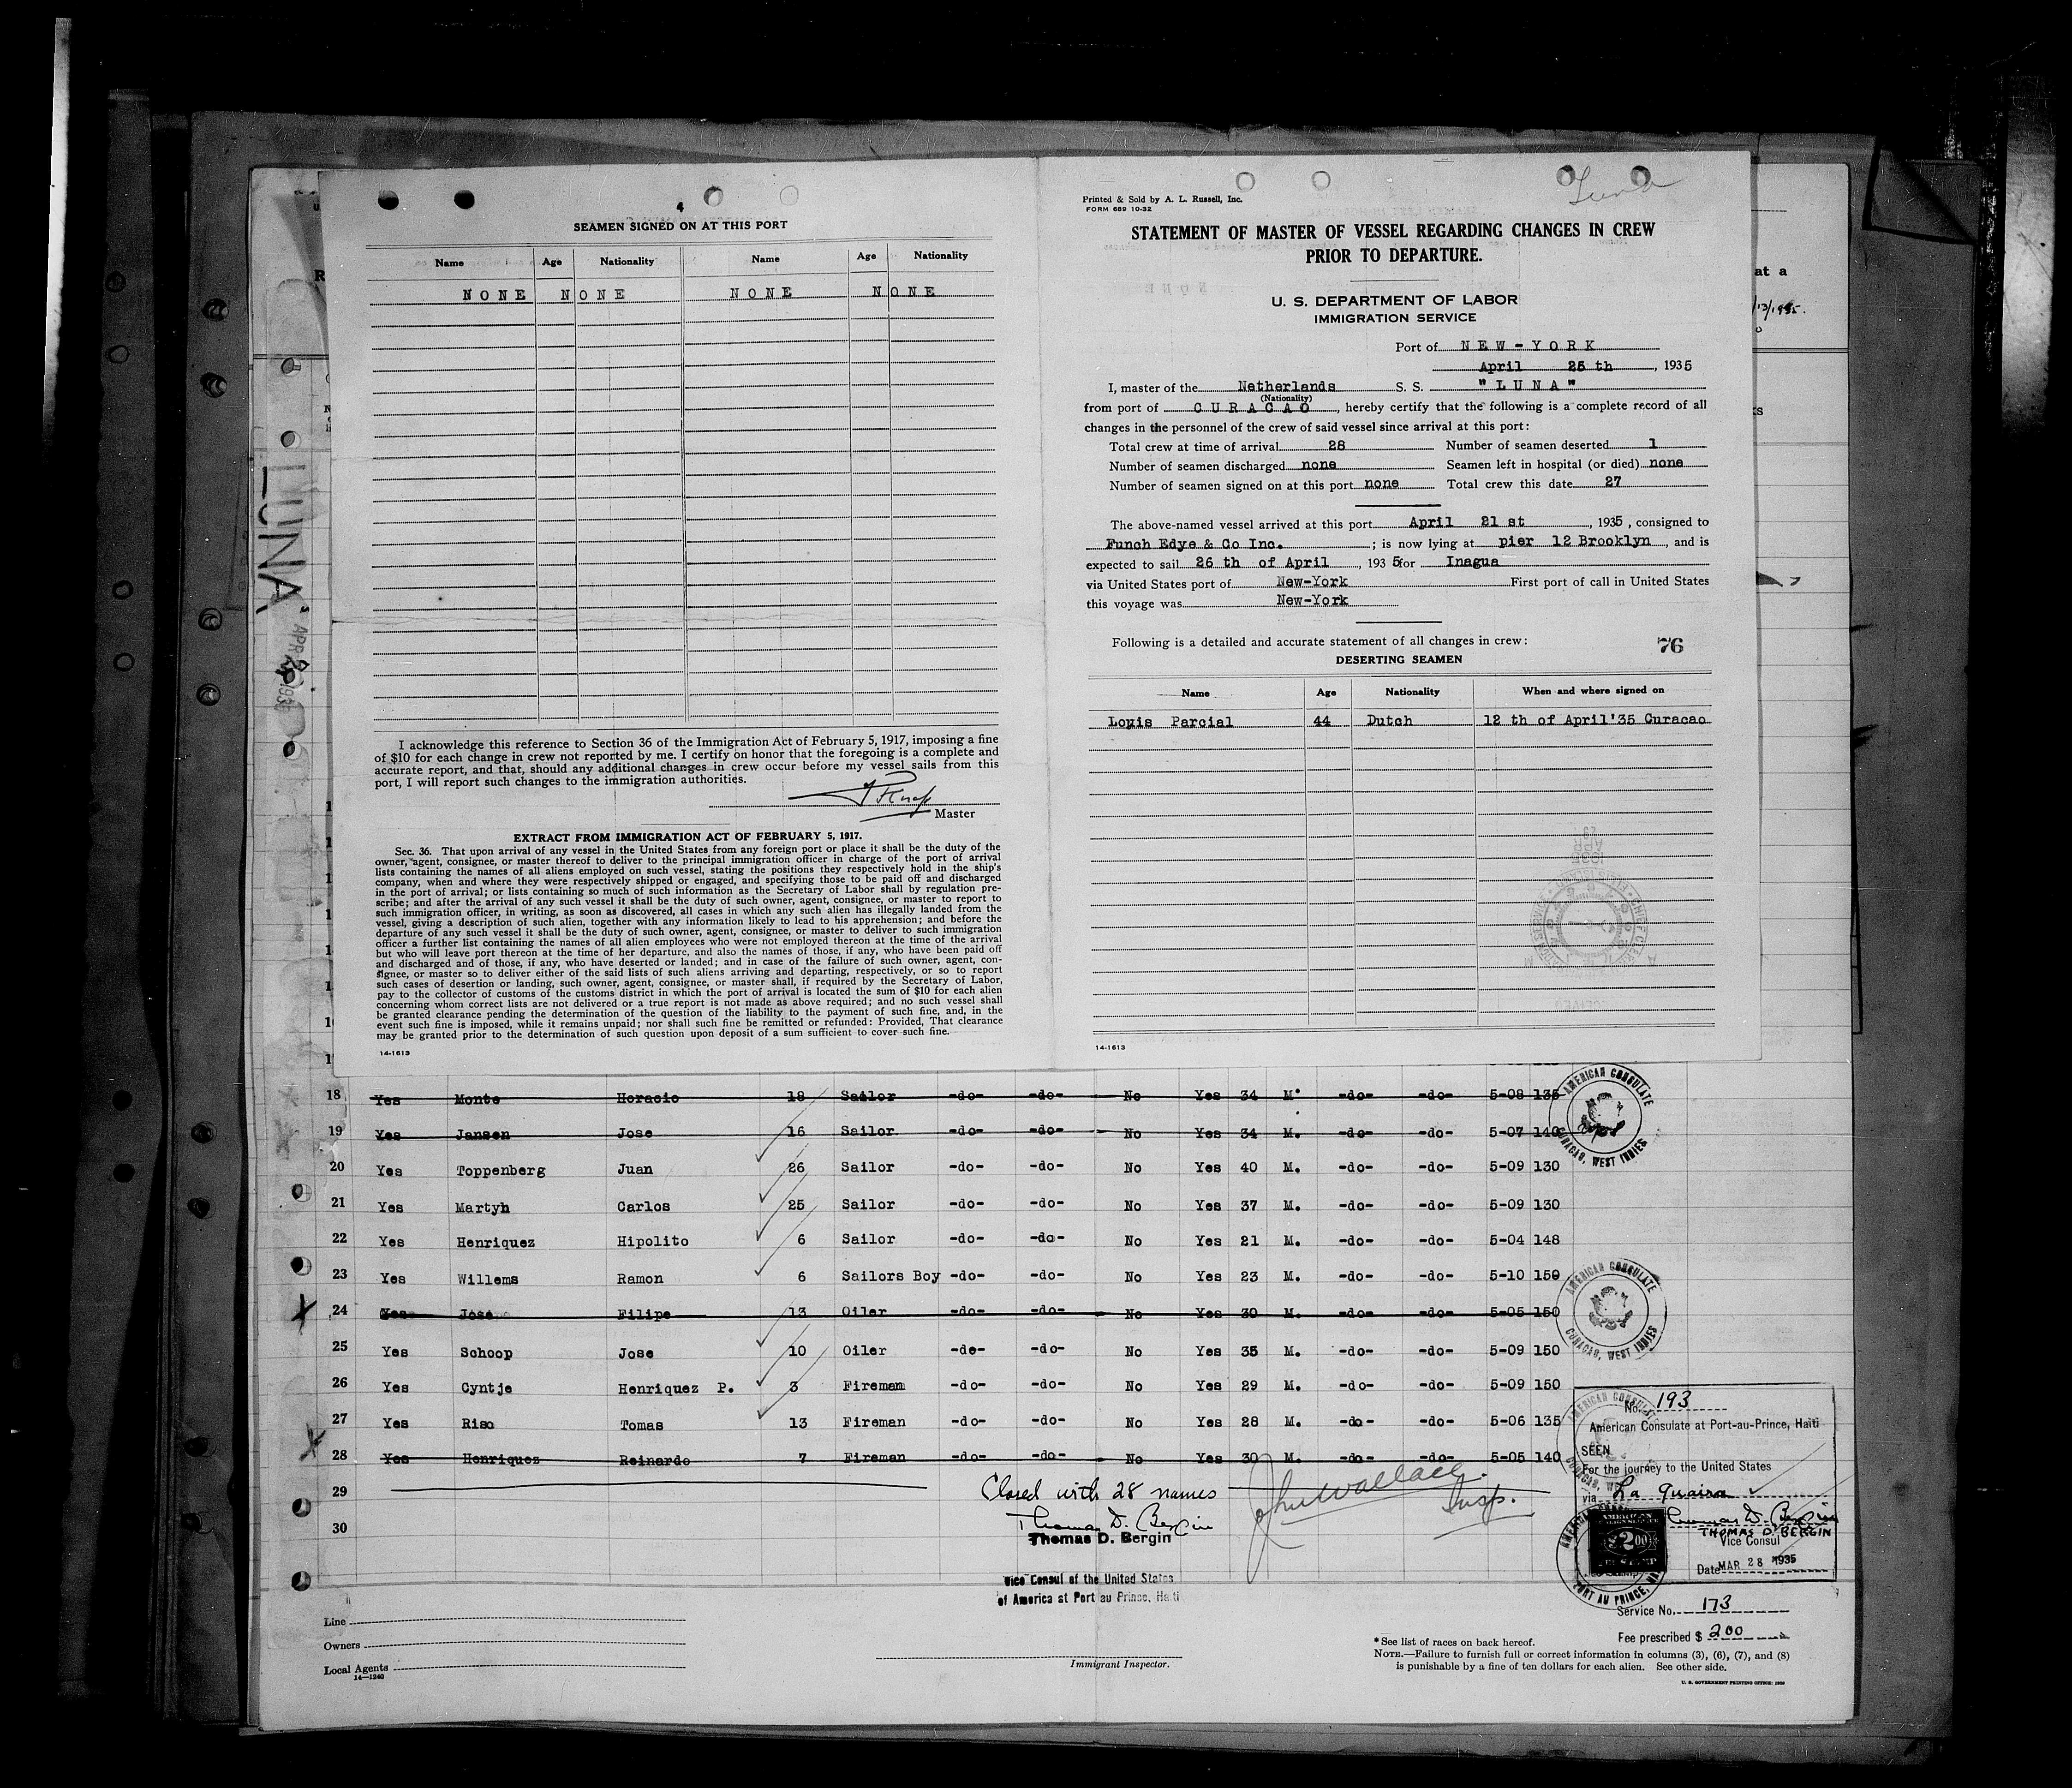 4
SEAMEN SIGNED ON AT THIS PORT
Name Age Nationality Name Age Nationality
NONE NONE NONE NONE
I acknowledge this reference to Section 36 of the Immigration Act of February 5, 1917, imposing a fine
of $10 for each change in crew not reported by me. I certify on honor that the foregoing is a complete and
accurate report, and that, should any additional changes in crew occur before my vessel sails from this
port, I will report such changes to the immigration authorities.
Master
EXTRACT FROM IMMIGRATION ACT OF FEBRUARY 5, 1917.
Sec. 36. That upon arrival of any vessel in the United States from any foreign port or place it shall be the duty of the
owner, agent, consignee, or master thereof to deliver to the principal immigration officer in charge of the port of arrival
lists containing the names of all aliens employed on such vessel, stating the positions they respectively hold in the ship's
company, when and where they were respectively shipped or engaged, and specifying those to be paid off and discharged
in the port of arrival; or lists containing so much of such information as the Secretary of Labor shall by regulation pre-
scribe; and after the arrival of any such vessel it shall be the duty of such owner, agent, consignee, or master to report to
such immigration officer, in writing, as soon as discovered, all cases in which any such alien has illegally landed from the
vessel, giving a description of such alien, together with any information likely to lead to his apprehension; and before the
departure of any such vessel it shall be the duty of such owner, agent, consignee, or master to deliver to such immigration
officer a further list containing the names of all alien employees who were not employed thereon at the time of the arrival
but who will leave port thereon at the time of her departure, and also the names of those, if any, who have been paid off
and discharged and of those, if any, who have deserted or landed; and in case of the failure of such owner, agent, con-
signee, or master so to deliver either of the said lists of such aliens arriving and departing, respectively, or so to report
such cases of desertion or landing, such owner, agent, consignee, or master shall, if required by the Secretary of Labor,
pay to the collector of customs of the customs district in which the port of arrival is located the sum of $10 for each alien
concerning whom correct lists are not delivered or a true report is not made as above required; and no such vessel shall
be granted clearance pending the determination of the question of the liability to the payment of such fine, and, in the
event such fine is imposed, while it remains unpaid; nor shall such fine be remitted or refunded: Provided, That clearance
may be granted prior to the determination of such question upon deposit of a sum sufficient to cover such fine.
14-1613
Printed & Sold by A. L. Russell, Inc.
FORM 689 10-32
Luna
STATEMENT OF MASTER OF VESSEL REGARDING CHANGES IN CREW
PRIOR TO DEPARTURE.
U. S. DEPARTMENT OF LABOR
IMMIGRATION SERVICE
Port of NEW-YORK
April 25 th, 1935
I, master of the Netherlands S. S. "LUNA"
(Nationality)
from port of CURACAO, hereby certify that the following is a complete record of all
changes in the personnel of the crew of said vessel since arrival at this port:
Total crew at time of arrival 28 Number of seamen deserted 1
Number of seamen discharged none Seamen left in hospital (or died) none
Number of seamen signed on at this port none Total crew this date 27
The above-named vessel arrived at this port April 21 st, 1935, consigned to
Funch Edye & Co Inc. ; is now lying at pier 12 Brooklyn, and is
expected to sail 26 th of April, 1935 for Inagua
via United States port of New-York First port of call in United States
this voyage was New-York
Following is a detailed and accurate statement of all changes in crew:
76
DESERTING SEAMEN
Name Age Nationality When and where signed on
Louis Parcial 44 Dutch 12 th of April'35 Curacao
14-1613
LUNA
18 Yes Monte Horacio 18 Sailor -do- -do- No Yes 34 M. -do- -do- 5-08 135
19 Yes Jansen Jose 16 Sailor -do- -do- No Yes 34 M. -do- -do- 5-07 140
20 Yes Toppenberg Juan 26 Sailor -do- -do- No Yes 40 M. -do- -do- 5-09 130
21 Yes Martyn Carlos 25 Sailor -do- -do- No Yes 37 M. -do- -do- 5-09 130
22 Yes Henriquez Hipolito 6 Sailor -do- -do- No Yes 21 M. -do- -do- 5-04 148
23 Yes Willems Ramon 6 Sailors Boy -do- -do- No Yes 23 M. -do- -do- 5-10 150
24 Yes Jose Filipe 13 Oiler -do- -do- No Yes 30 M. -do- -do- 5-05 150
25 Yes Schoop Jose 10 Oiler -do- -do- No Yes 35 M. -do- -do- 5-09 150
26 Yes Cyntje Henriquez P. 3 Fireman -do- -do- No Yes 29 M. -do- -do- 5-09 150
27 Yes Riso Tomas 13 Fireman -do- -do- No Yes 28 M. -do- -do- 5-06 135
28 Yes Henriquez Reinardo 7 Fireman -do- -do- No Yes 30 M. -do- -do- 5-05 140
29 Closed with 28 names John Wallace Insp.
30 Thomas D. Bergin
Thomas D. Bergin
Vice Consul of the United States
of America at Port au Prince, Haiti
AMERICAN CONSULATE
CURACAO, WEST INDIES
AMERICAN CONSULATE
CURACAO, WEST INDIES
No. 193
American Consulate at Port-au-Prince, Haiti
SEEN
For the journey to the United States
via La Guaira
Thomas D. Bergin
THOMAS D. BERGIN
Vice Consul
Date MAR 28 1935
Service No. 173
Fee prescribed $ 200
Line
Owners
Local Agents
14-1240
Immigrant Inspector.
*See list of races on back hereof.
NOTE.—Failure to furnish full or correct information in columns (3), (6), (7), and (8)
is punishable by a fine of ten dollars for each alien. See other side.
U. S. GOVERNMENT PRINTING OFFICE: